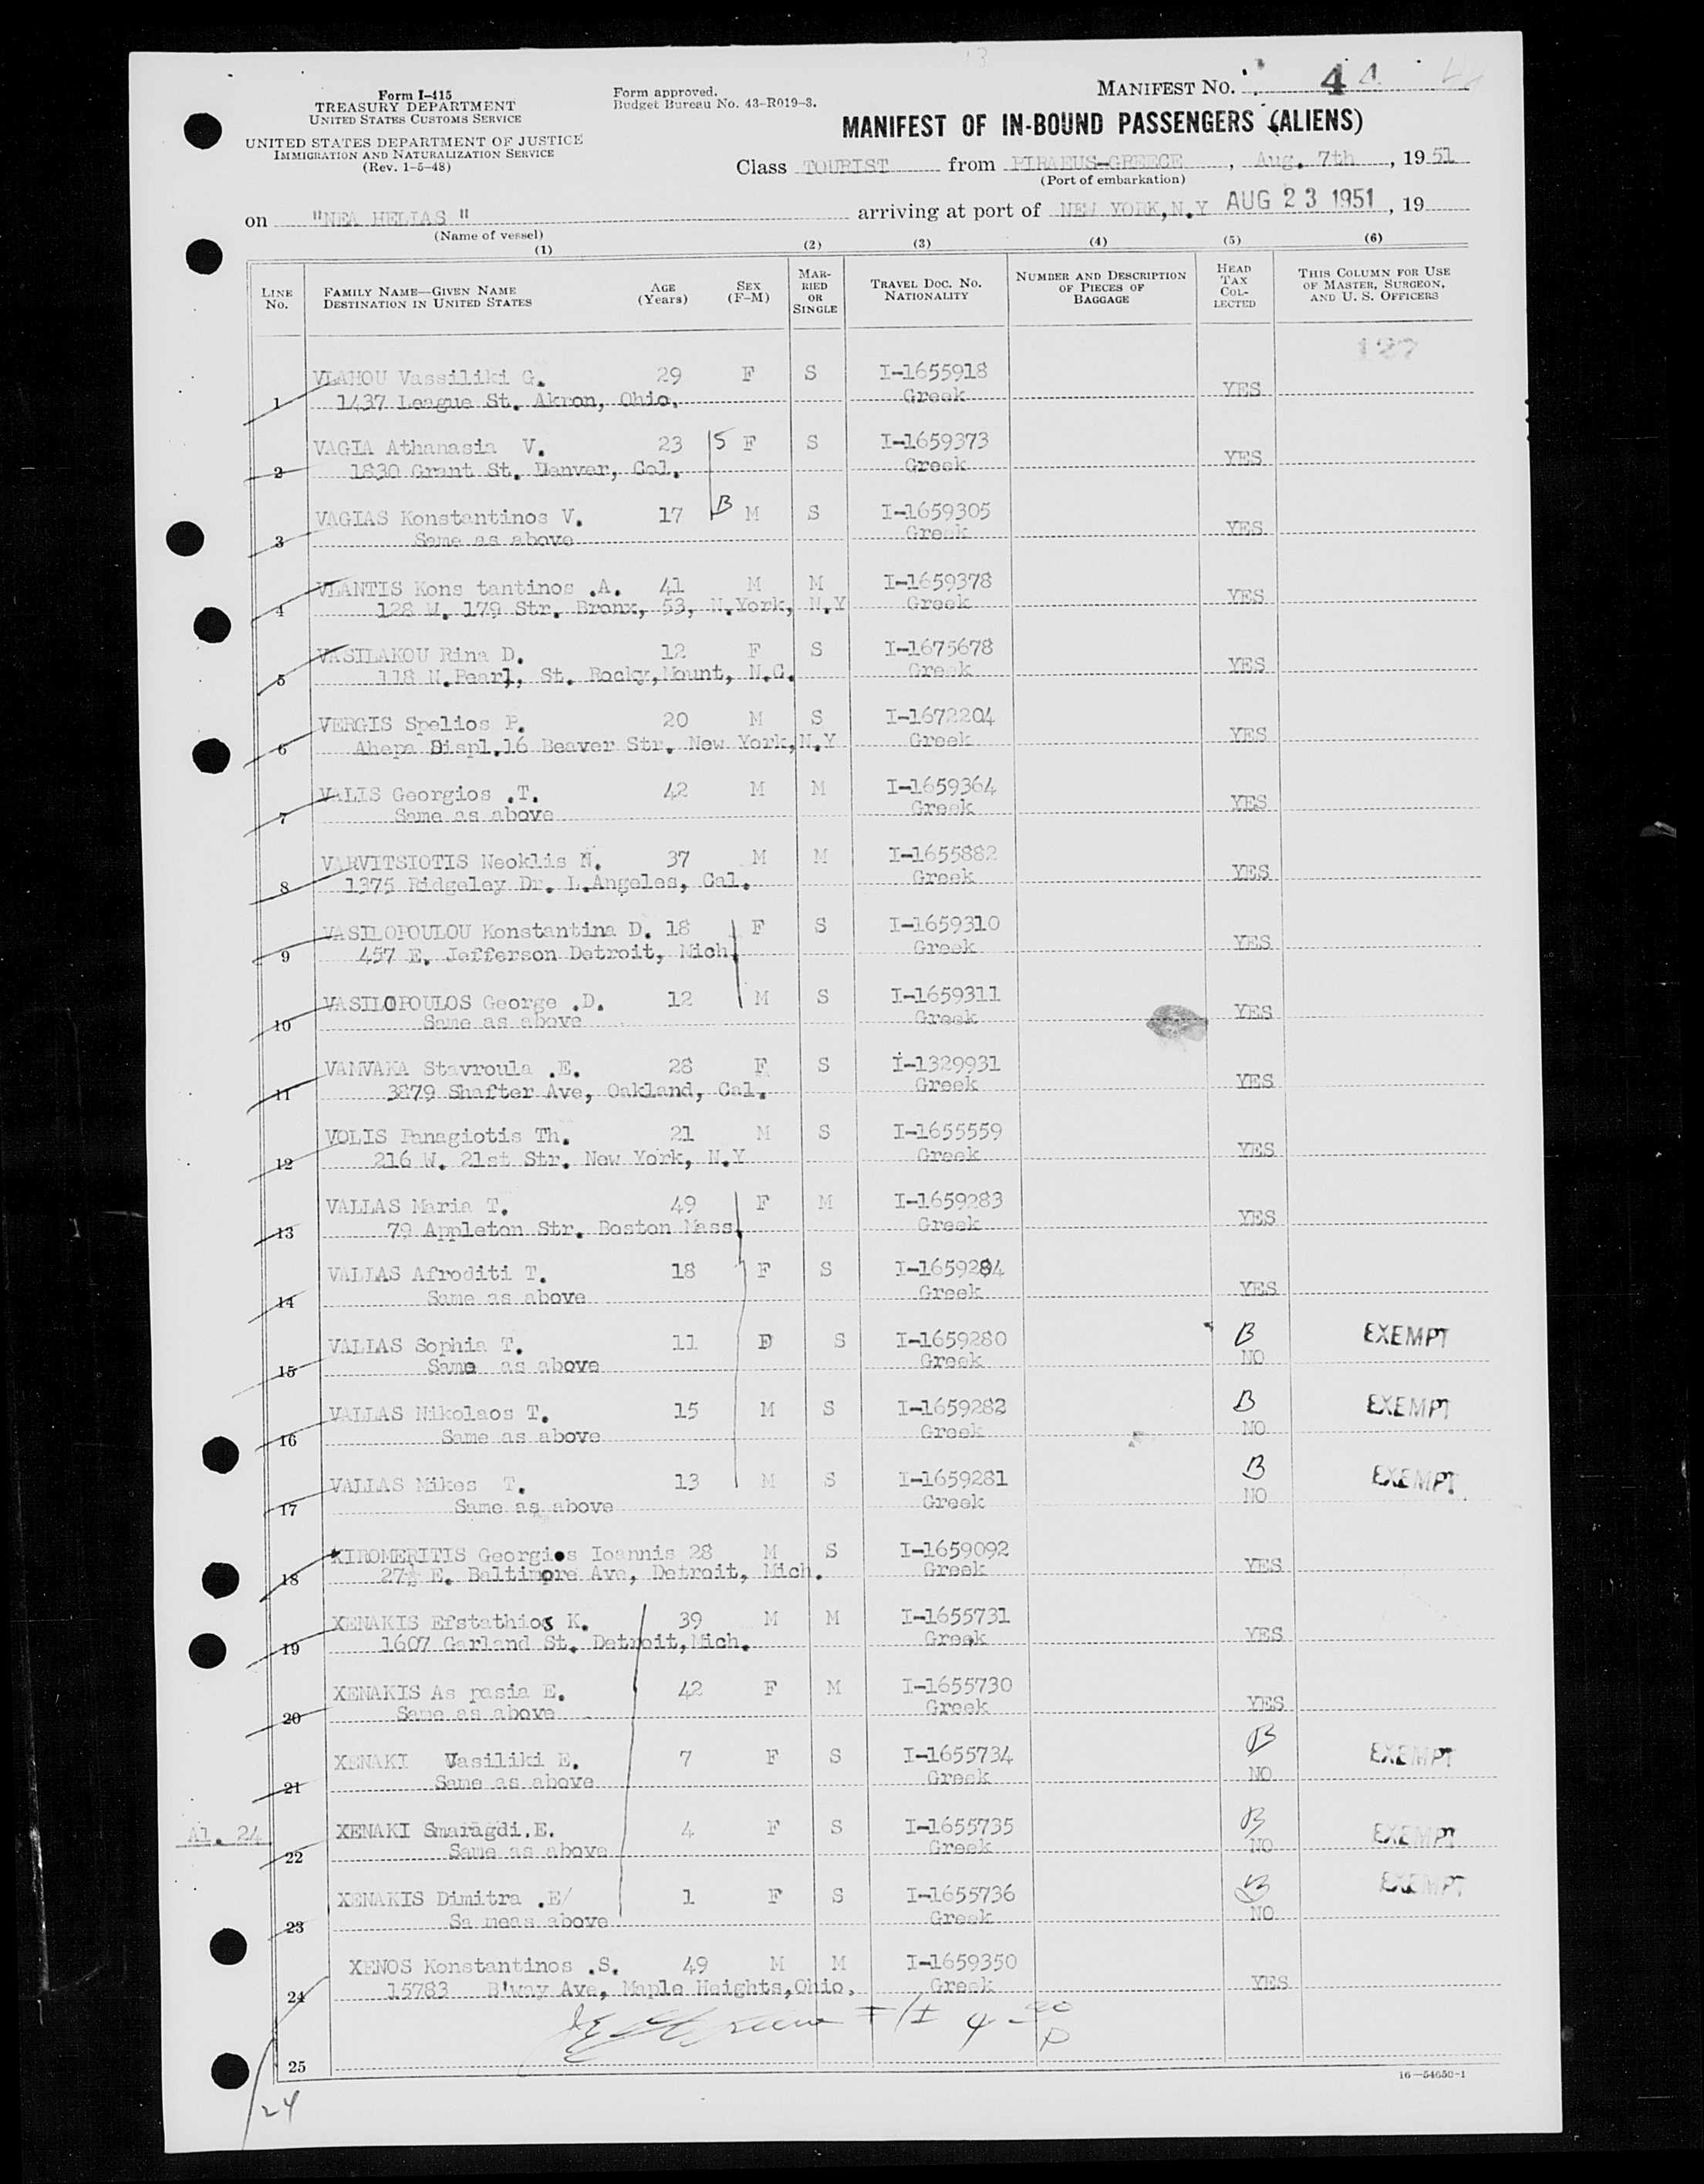 Form I-415
TREASURY DEPARTMENT
UNITED STATES CUSTOMS SERVICE
UNITED STATES DEPARTMENT OF JUSTICE
IMMIGRATION AND NATURALIZATION SERVICE
(Rev. 1-5-48)
Form approved.
Budget Bureau No. 43-R019-3.
MANIFEST NO. 44
MANIFEST OF IN-BOUND PASSENGERS (ALIENS)
Class TOURIST from PIRAEUS-GREECE, Aug. 7th, 1951
(Port of embarkation)
on "NEA HELLAS" arriving at port of NEW YORK, N.Y AUG 23 1951, 19
(Name of vessel)
(1) (2) (3) (4) (5) (6)
LINE No. FAMILY NAME—GIVEN NAME DESTINATION IN UNITED STATES AGE (Years) SEX (F-M) MARRIED OR SINGLE TRAVEL DOC. NO. NATIONALITY NUMBER AND DESCRIPTION OF PIECES OF BAGGAGE HEAD TAX COLLECTED THIS COLUMN FOR USE OF MASTER, SURGEON, AND U. S. OFFICERS
127
VLAHOU Vassiliki G. 29 F S I-1655918
1 1437 League St. Akron, Ohio. Greek YES
VAGIA Athanasia V. 23 S F S I-1659373
2 1830 Grant St. Denver, Col. Greek YES
VAGIAS Konstantinos V. 17 B M S I-1659305
3 Same as above Greek YES
VLANTIS Kons tantinos .A. 41 M M I-1659378
4 128 W. 179 Str. Bronx, 53, N.York, N.Y Greek YES
VASILAKOU Rina D. 12 F S I-1675678
5 118 N.Pearl, St. Rocky, Mount, N.C. Greek YES
VERGIS Spelios P. 20 M S I-1672204
6 Ahepa Displ.16 Beaver Str. New York, N.Y Greek YES
VALIS Georgios .T. 42 M M I-1659364
7 Same as above Greek YES
VARVITSIOTIS Neoklis N. 37 M M I-1655882
8 1375 Ridgeley Dr. L.Angeles, Cal. Greek YES
VASILOPOULOU Konstantina D. 18 F S I-1659310
9 457 E. Jefferson Detroit, Mich. Greek YES
VASILOPOULOS George .D. 12 M S I-1659311
10 Same as above Greek YES
VAMVAKA Stavroula .E. 28 F S I-1329931
11 3879 Shafter Ave, Oakland, Cal. Greek YES
VOLIS Panagiotis Th. 21 M S I-1655559
12 216 W. 21st Str. New York, N.Y Greek YES
VALLAS Maria T. 49 F M I-1659283
13 79 Appleton Str. Boston Mass. Greek YES
VALLAS Afroditi T. 18 F S I-1659284
14 Same as above Greek YES
VALLAS Sophia T. 11 F S I-1659280 B EXEMPT
15 Same as above Greek NO
VALLAS Nikolaos T. 15 M S I-1659282 B EXEMPT
16 Same as above Greek NO
VALLAS Mikes T. 13 M S I-1659281 B EXEMPT
17 Same as above Greek NO
KIROMERITIS Georgios Ioannis 28 M S I-1659092
18 27½ E. Baltimore Ave, Detroit, Mich. Greek YES
XENAKIS Efstathios K. 39 M M I-1655731
19 1607 Garland St. Detroit, Mich. Greek YES
XENAKIS As pasia E. 42 F M I-1655730
20 Same as above Greek YES
XENAKI Vasiliki E. 7 F S I-1655734 B EXEMPT
21 Same as above Greek NO
Al. 24 XENAKI Smaragdi.E. 4 F S I-1655735 B EXEMPT
22 Same as above Greek NO
XENAKIS Dimitra .E/ 1 F S I-1655736 B EXEMPT
23 Sa meas above Greek NO
XENOS Konstantinos .S. 49 M M I-1659350
24 15783 B'way Ave, Maple Heights, Ohio. Greek YES
25
16—54650-1
24